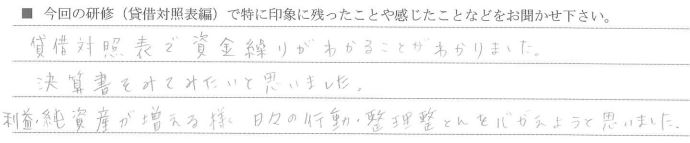 ■ 今回の研修（貸借対照表編）で特に印象に残ったことや感じたことなどをお聞かせ下さい。
貸借対照表で資金繰りがわかることがわかりました。
決算書をみてみたいと思いました。
利益・純資産が増える様、日々の行動・整理整とんを心がえようと思いました。